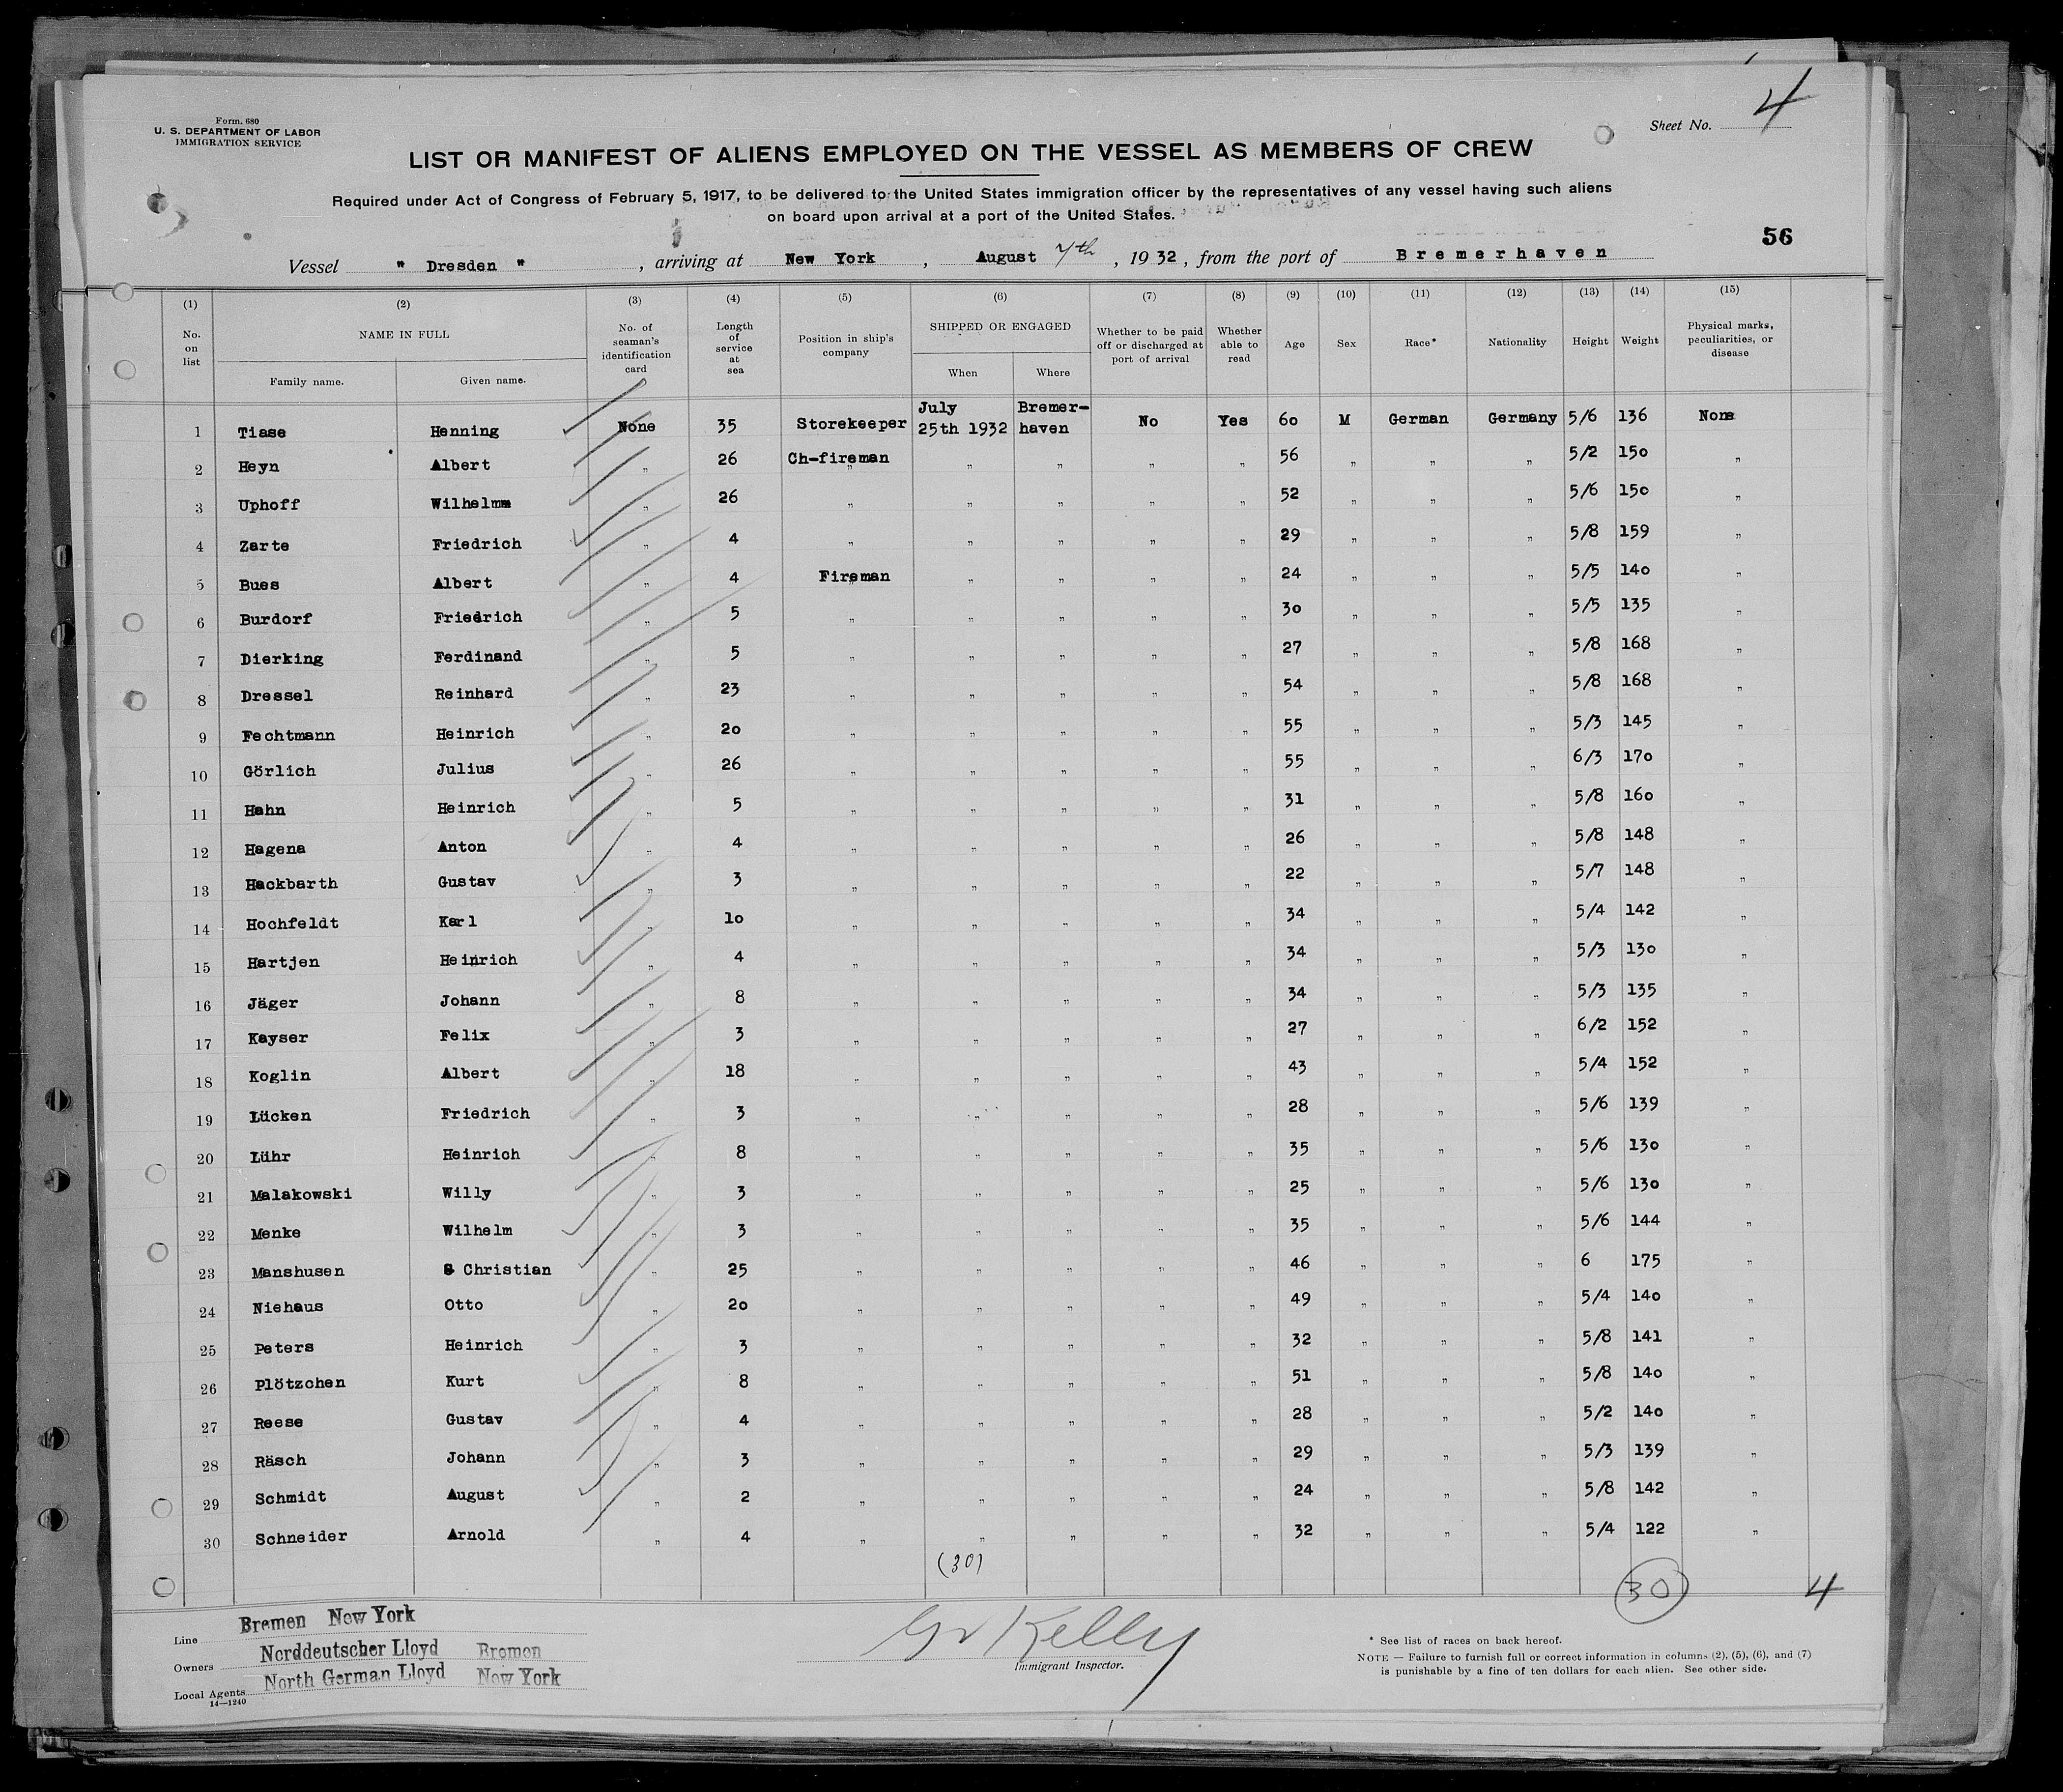 4
Form. 680
U. S. DEPARTMENT OF LABOR
IMMIGRATION SERVICE
Sheet No.
LIST OR MANIFEST OF ALIENS EMPLOYED ON THE VESSEL AS MEMBERS OF CREW
Required under Act of Congress of February 5, 1917, to be delivered to the United States immigration officer by the representatives of any vessel having such aliens
on board upon arrival at a port of the United States.
56
Vessel " Dresden " , arriving at New York , August 7th , 1932 , from the port of Bremerhaven
(1) (2) (3) (4) (5) (6) (7) (8) (9) (10) (11) (12) (13) (14) (15)
No. on list NAME IN FULL Family name. Given name. No. of seaman's identification card Length of service at sea Position in ship's company SHIPPED OR ENGAGED When Where Whether to be paid off or discharged at port of arrival Whether able to read Age Sex Race* Nationality Height Weight Physical marks, peculiarities, or disease
1 Tiase Henning None 35 Storekeeper July 25th 1932 Bremer-haven No Yes 60 M German Germany 5/6 136 None
2 Heyn Albert " 26 Ch-fireman " " " " 56 " " " 5/2 150 "
3 Uphoff Wilhelm " 26 " " " " " 52 " " " 5/6 150 "
4 Zarte Friedrich " 4 " " " " " 29 " " " 5/8 159 "
5 Bues Albert " 4 Fireman " " " " 24 " " " 5/5 140 "
6 Burdorf Friedrich " 5 " " " " " 30 " " " 5/5 135 "
7 Dierking Ferdinand " 5 " " " " " 27 " " " 5/8 168 "
8 Dressel Reinhard " 23 " " " " " 54 " " " 5/8 168 "
9 Fechtmann Heinrich " 20 " " " " " 55 " " " 5/3 145 "
10 Görlich Julius " 26 " " " " " 55 " " " 6/3 170 "
11 Hahn Heinrich " 5 " " " " " 31 " " " 5/8 160 "
12 Hagena Anton " 4 " " " " " 26 " " " 5/8 148 "
13 Hackbarth Gustav " 3 " " " " " 22 " " " 5/7 148 "
14 Hochfeldt Karl " 10 " " " " " 34 " " " 5/4 142 "
15 Hartjen Heinrich " 4 " " " " " 34 " " " 5/3 130 "
16 Jäger Johann " 8 " " " " " 34 " " " 5/3 135 "
17 Kayser Felix " 3 " " " " " 27 " " " 6/2 152 "
18 Koglin Albert " 18 " " " " " 43 " " " 5/4 152 "
19 Lücken Friedrich " 3 " " " " " 28 " " " 5/6 139 "
20 Lühr Heinrich " 8 " " " " " 35 " " " 5/6 130 "
21 Malakowski Willy " 3 " " " " " 25 " " " 5/6 130 "
22 Menke Wilhelm " 3 " " " " " 35 " " " 5/6 144 "
23 Manshusen Christian " 25 " " " " " 46 " " " 6 175 "
24 Niehaus Otto " 20 " " " " " 49 " " " 5/4 140 "
25 Peters Heinrich " 3 " " " " " 32 " " " 5/8 141 "
26 Plötzchen Kurt " 8 " " " " " 51 " " " 5/8 140 "
27 Reese Gustav " 4 " " " " " 28 " " " 5/2 140 "
28 Räsch Johann " 3 " " " " " 29 " " " 5/3 139 "
29 Schmidt August " 2 " " " " " 24 " " " 5/8 142 "
30 Schneider Arnold " 4 " " " " " 32 " " " 5/4 122 "
(30)
30 4
Line Bremen New York
Owners Norddeutscher Lloyd Bremen
Local Agents North German Lloyd New York
14—1240
Kelly
Immigrant Inspector.
* See list of races on back hereof.
NOTE — Failure to furnish full or correct information in columns (2), (5), (6), and (7)
is punishable by a fine of ten dollars for each alien. See other side.